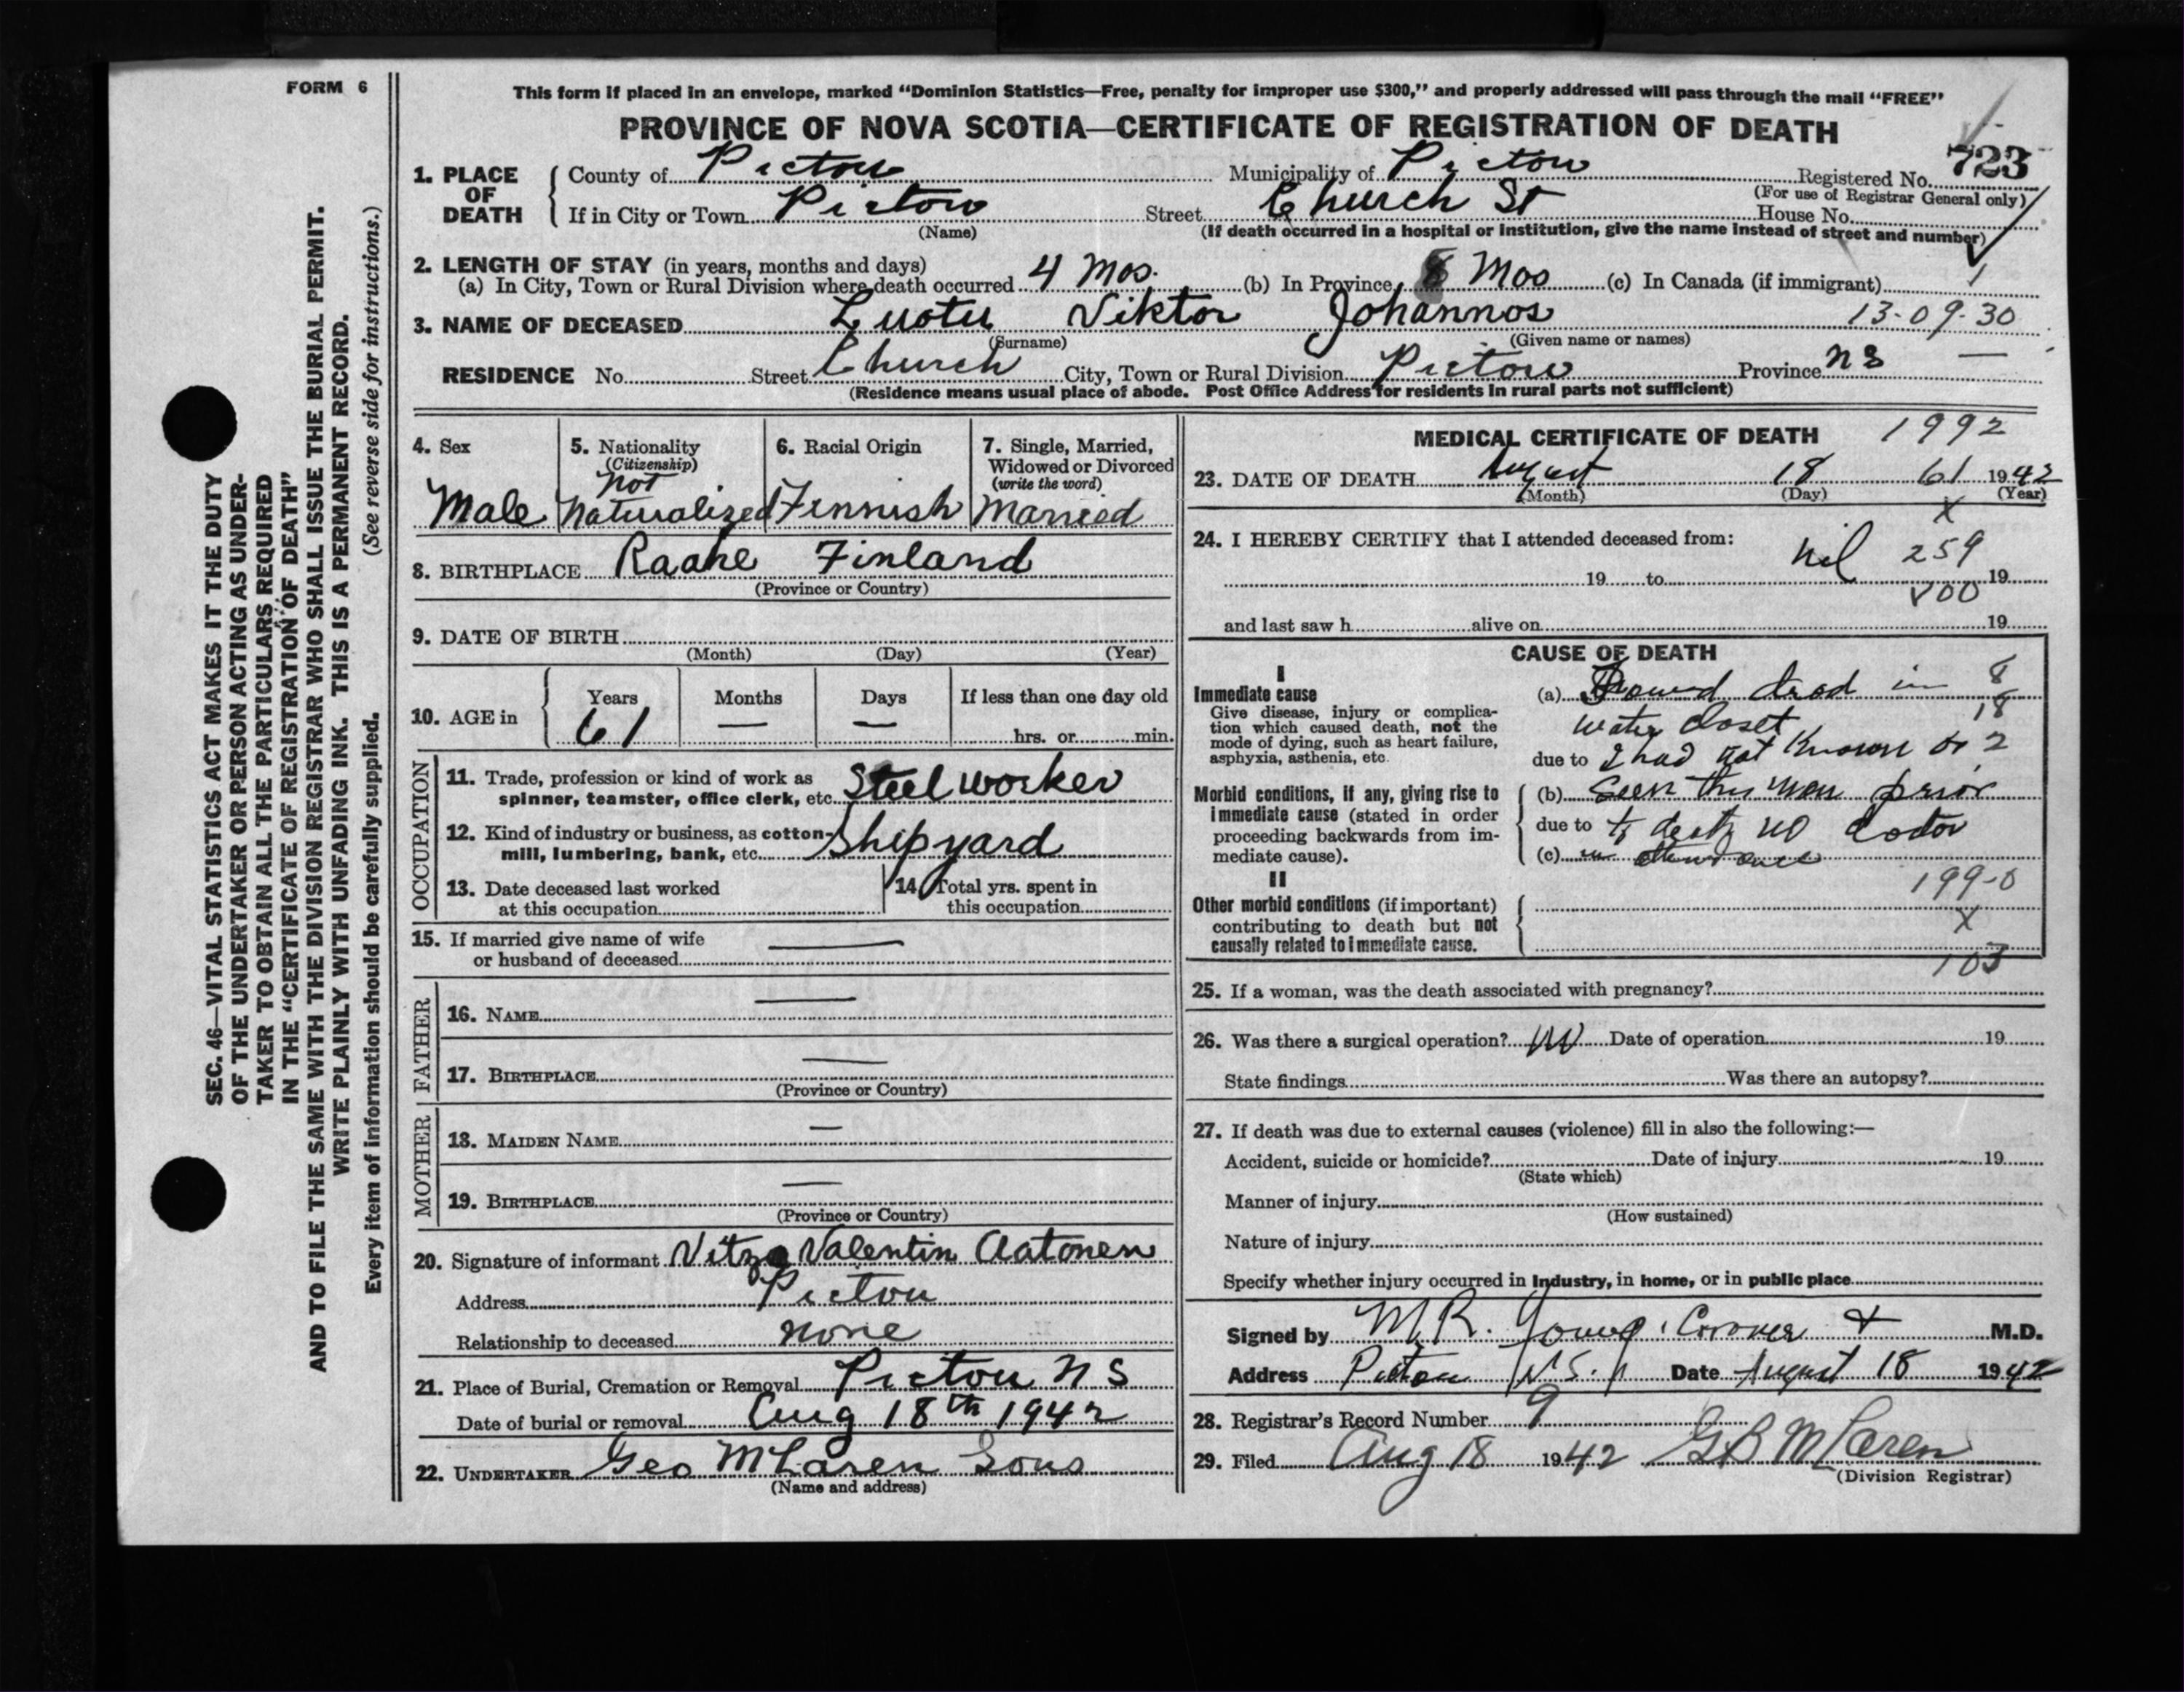 FORM 6
This form if placed in an envelope, marked “Dominion Statistics—Free, penalty for improper use $300,” and properly addressed will pass through the mail “FREE”
PROVINCE OF NOVA SCOTIA—CERTIFICATE OF REGISTRATION OF DEATH
723
1. PLACE OF DEATH { County of Pictou Municipality of Pictou Registered No.
(For use of Registrar General only)
If in City or Town Pictou Street Church St House No.
(Name) (If death occurred in a hospital or institution, give the name instead of street and number)
2. LENGTH OF STAY (in years, months and days)
(a) In City, Town or Rural Division where death occurred 4 Mos. (b) In Province 8 Mos (c) In Canada (if immigrant)
3. NAME OF DECEASED Luotu Viktor Johannos 13-09-30
(Surname) (Given name or names)
RESIDENCE No. Street Church City, Town or Rural Division Pictou Province N S —
(Residence means usual place of abode. Post Office Address for residents in rural parts not sufficient)
SEC. 46—VITAL STATISTICS ACT MAKES IT THE DUTY
OF THE UNDERTAKER OR PERSON ACTING AS UNDER-
TAKER TO OBTAIN ALL THE PARTICULARS REQUIRED
IN THE “CERTIFICATE OF REGISTRATION OF DEATH”
AND TO FILE THE SAME WITH THE DIVISION REGISTRAR WHO SHALL ISSUE THE BURIAL PERMIT.
WRITE PLAINLY WITH UNFADING INK. THIS IS A PERMANENT RECORD.
Every item of information should be carefully supplied. (See reverse side for instructions.)
4. Sex
Male
5. Nationality
(Citizenship)
Not
Naturalized
6. Racial Origin
Finnish
7. Single, Married,
Widowed or Divorced
(write the word)
Married
8. BIRTHPLACE Raahe Finland
(Province or Country)
9. DATE OF BIRTH
(Month) (Day) (Year)
10. AGE in { Years Months Days If less than one day old
61 — — hrs. or min.
OCCUPATION
11. Trade, profession or kind of work as
spinner, teamster, office clerk, etc. Steel worker
12. Kind of industry or business, as cotton-
mill, lumbering, bank, etc. Shipyard
13. Date deceased last worked
at this occupation
14. Total yrs. spent in
this occupation
15. If married give name of wife
or husband of deceased —
FATHER
16. NAME —
17. BIRTHPLACE —
(Province or Country)
MOTHER
18. MAIDEN NAME —
19. BIRTHPLACE —
(Province or Country)
20. Signature of informant Valentin Aatonen
Address Pictou
Relationship to deceased None
21. Place of Burial, Cremation or Removal Pictou N S
Date of burial or removal Aug 18th 1942
22. UNDERTAKER Geo McLaren Sons
(Name and address)
MEDICAL CERTIFICATE OF DEATH 1992
23. DATE OF DEATH August 18 61 1942
(Month) (Day) (Year)
X
24. I HEREBY CERTIFY that I attended deceased from:
nil 259
19 to 19
00
and last saw h alive on 19
CAUSE OF DEATH
I
Immediate cause
Give disease, injury or complica-
tion which caused death, not the
mode of dying, such as heart failure,
asphyxia, asthenia, etc.
(a) Found dead in 8
water closet 18
due to I had not known or 2
Morbid conditions, if any, giving rise to
immediate cause (stated in order
proceeding backwards from im-
mediate cause).
(b) Seen this man prior
due to to death no doctor
(c) in attendance
199-0
II
Other morbid conditions (if important)
contributing to death but not
causally related to immediate cause.
X
103
25. If a woman, was the death associated with pregnancy?
26. Was there a surgical operation? no Date of operation 19
State findings Was there an autopsy?
27. If death was due to external causes (violence) fill in also the following:—
Accident, suicide or homicide? Date of injury 19
(State which)
Manner of injury
(How sustained)
Nature of injury
Specify whether injury occurred in Industry, in home, or in public place
Signed by M.R. Young Coroner + M.D.
Address Pictou N.S. Date August 18 1942
28. Registrar's Record Number 9
29. Filed Aug 18 1942 GB McLaren
(Division Registrar)